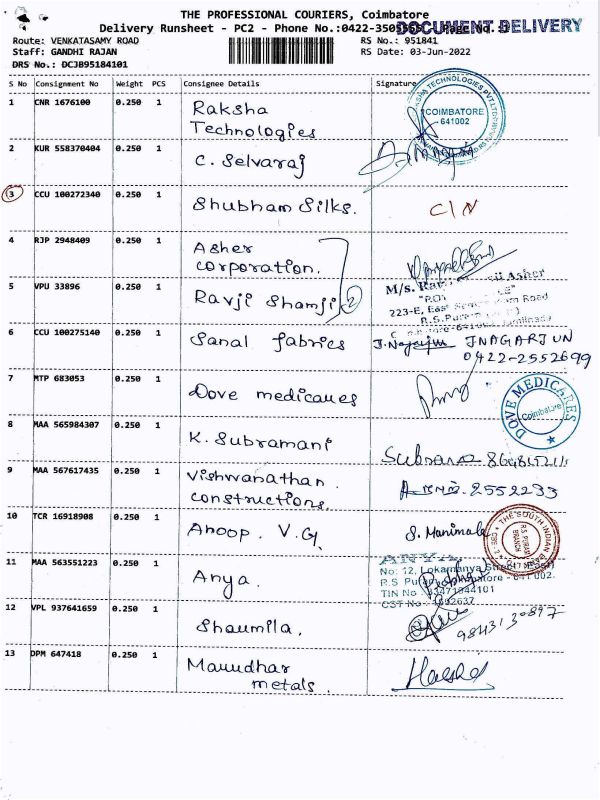 THE PROFESSIONAL COURIERS, Coimbatore
Delivery Runsheet - PC2 - Phone No.:0422-350
DOCUMENT DELIVERY
Route: VENKATASAMY ROAD
RS No.: 951841
Staff: GANDHI RAJAN
RS Date: 03-Jun-2022
DRS No.: DCJB95184101
S No Consignment No Weight PCS Consignee Details Signature
1 CNR 1676100 0.250 1 Raksha
Technologies
COIMBATORE
641002
2 KUR 558370404 0.250 1 C. Selvaraj
3 CCU 100272340 0.250 1 Shubham Silks. C/N
4 RJP 2948409 0.250 1 Asher
corporation.
5 VPU 33896 0.250 1 Ravji Shamji 2
M/s. Asher
223-E, East Road
6 CCU 100275140 0.250 1 Sanal fabrics J.Nagarjun JNAGARJUN
0422-2552699
7 MTP 683053 0.250 1 Dove medicaues
DOVE MEDICARES
Coimbatore
8 MAA 565984307 0.250 1 K. Subramani
9 MAA 567617435 0.250 1 Vishwanathan
constructions. 2552233
10 TCR 16918908 0.250 1 Anoop. V.G. S. Manimala
THE SOUTH INDIAN
R.S. PURAM
BRANCH
11 MAA 563551223 0.250 1 Anya.
ANYA
No: 12, Lokamanya Street
R.S Puram, Coimbatore - 641 002.
TIN No
CST No
12 VPL 937641659 0.250 1 Shaumila. 9843130897
13 DPM 647418 0.250 1 Mauudhar
metals.